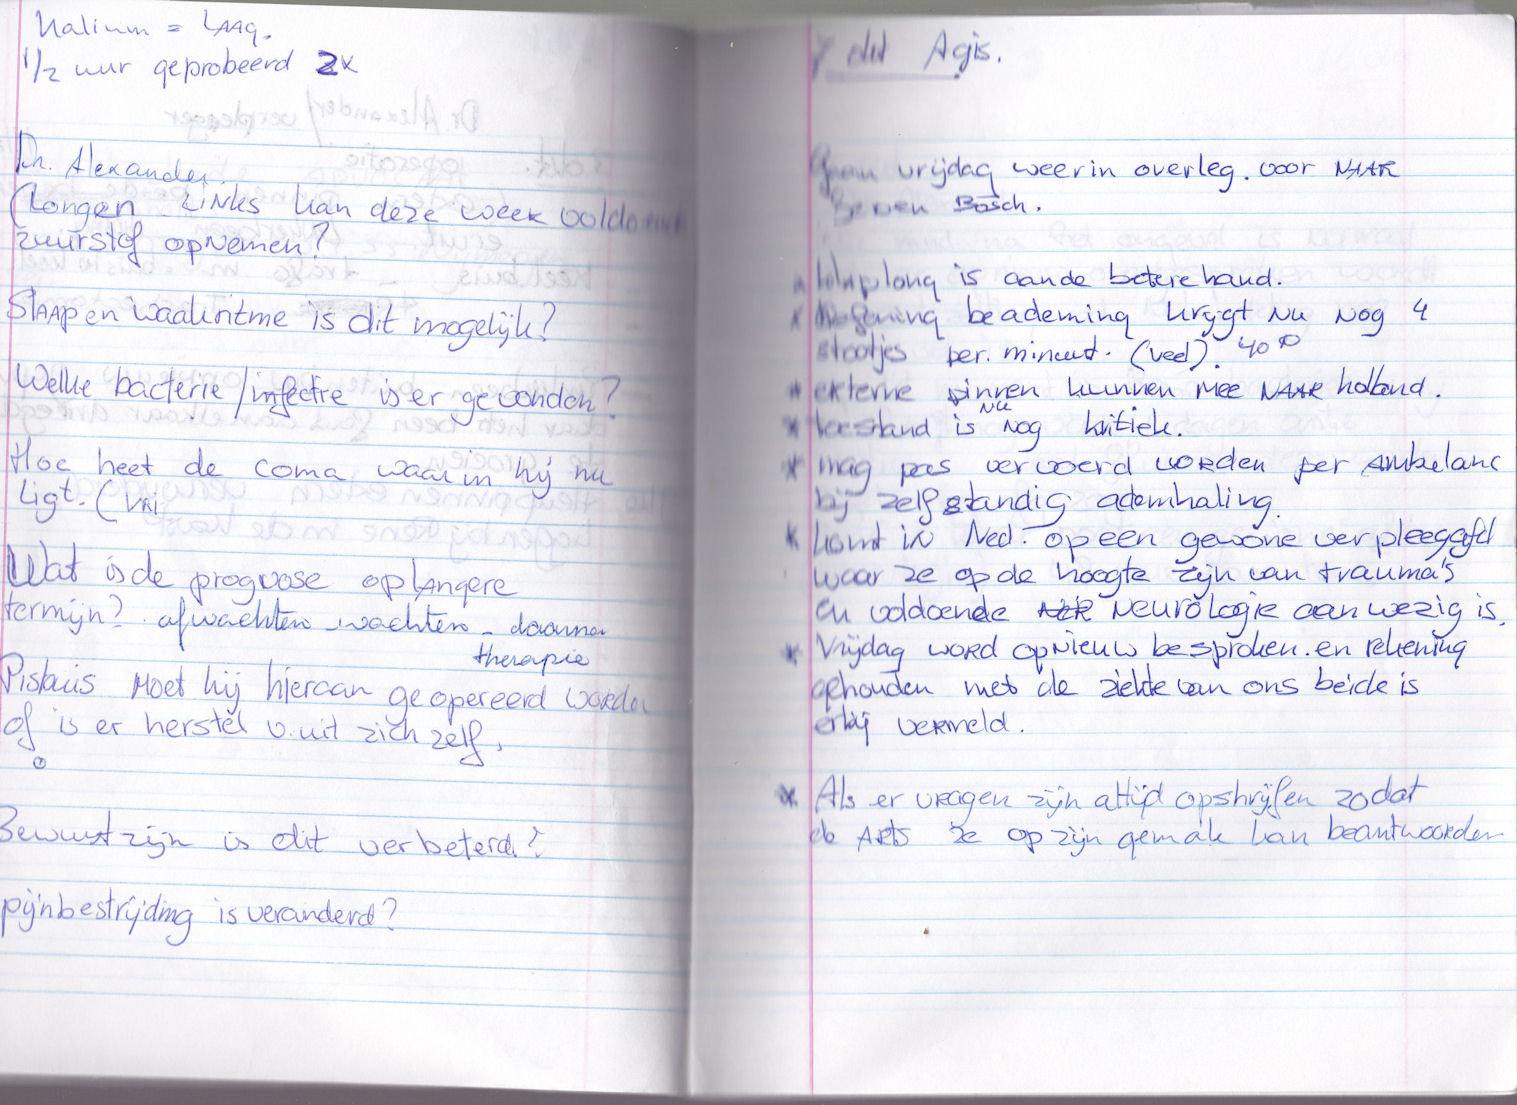 Kalium = LAAG.
1/2 uur geprobeerd 2x
Dr. Alexander.
(Longen LiNks kan deze week voldoende
zuurstof opNemen?
SlAAp en waakritme is dit mogelijk?
Welke bacterie/infectie is er gevonden?
Hoe heet de coma waar in hij nu
ligt. (VRi
Wat is de prognose op lAngere
termijn? afwachten - wachten - daarna
therapie
Pisbuis Moet hij hieraan geopereerd worden
of is er herstel v. uit zich zelf.
Bewust zijn is dit verbeterd?
pijnbestrijding is veranderd?
dit Agis.
Gaan vrijdag weer in overleg. voor NAAR
Bosch.
klaplong is aande betere hand.
beademing krijgt Nu Nog 4
stootjes per. minuut. (veel). 40
* externe pinnen kunnen Mee NAAR holland.
* toestand is Nu Nog kritiek.
* mag pas vervoerd worden per Ambulanc
bij zelfstandig ademhaling.
* komt iN Ned. op een gewone verpleegafd
waar ze op de hoogte zijn van trauma's
en voldoende Neurologie aanwezig is.
* Vrijdag word opNieuw besproken. en rekening
gehouden met de ziekte van ons beide is
erbij vermeld.
* Als er vragen zijn altijd opshrijfen zodat
de Arts ze op zijn gemak kan beantwoorden